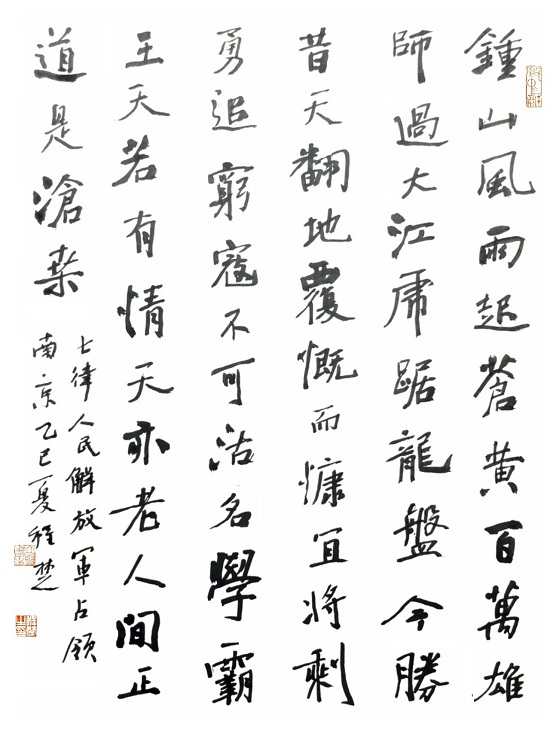 鍾山風雨起蒼黄百萬雄
師過大江虎踞龍盤今勝
昔天翻地覆慨而慷宜將剩
勇追窮寇不可沽名學霸
王天若有情天亦老人間正
道是滄桑
七律人民解放軍占領
南京乙巳夏程楚